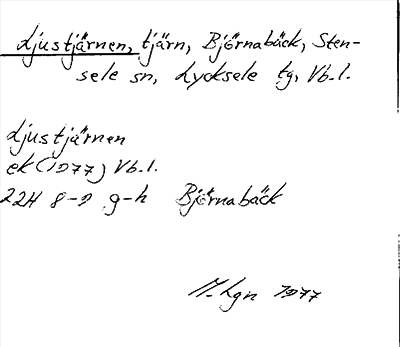 Ljustjärnen, tjärn, Björnabäck, Sten-
sele sn, Lycksele tg, Vb.l.
Ljustjärnen
ek (1977) Vb.l.
22H 8-9 g-h Björnabäck
M. Lgn 1977